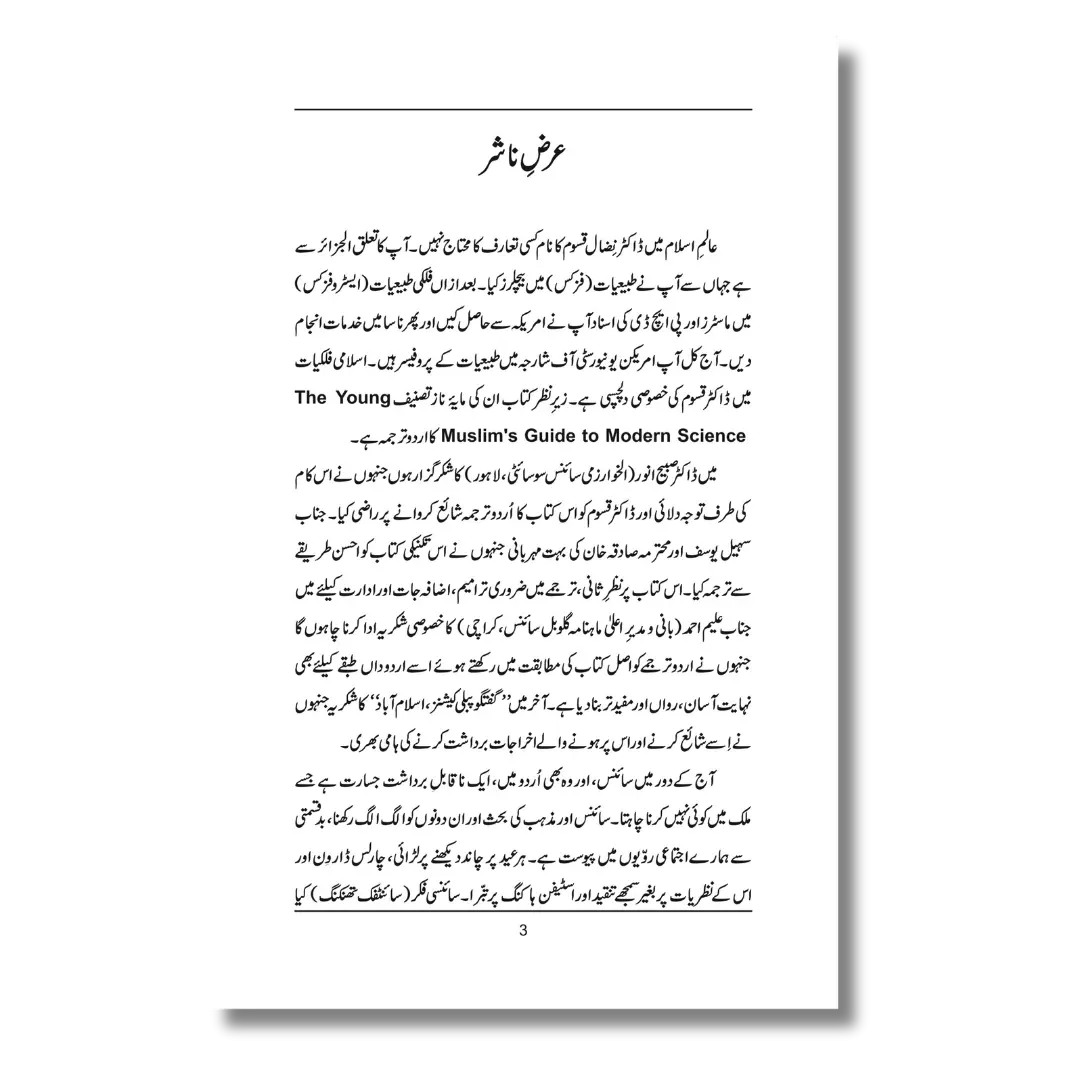 عرضِ ناشر
عالمِ اسلام میں ڈاکٹر نِضال قسوم کا نام کسی تعارف کا محتاج نہیں۔ آپ کا تعلق الجزائر سے
ہے جہاں سے آپ نے طبیعیات (فزکس) میں بیچلرز کیا۔ بعد ازاں فلکی طبیعیات (ایسٹروفزکس)
میں ماسٹرز اور پی ایچ ڈی کی اسناد آپ نے امریکہ سے حاصل کیں اور پھر ناسا میں خدمات انجام
دیں۔ آج کل آپ امریکن یونیورسٹی آف شارجہ میں طبیعیات کے پروفیسر ہیں۔ اسلامی فلکیات
میں ڈاکٹر قسوم کی خصوصی دلچسپی ہے۔ زیرِ نظر کتاب ان کی مایۂ ناز تصنیف The Young
Muslim's Guide to Modern Science کا اردو ترجمہ ہے۔
میں ڈاکٹر صبیح انور (الخوارزمی سائنس سوسائٹی، لاہور) کا شکر گزار ہوں جنہوں نے اس کام
کی طرف توجہ دلائی اور ڈاکٹر قسوم کو اس کتاب کا اُردو ترجمہ شائع کروانے پر راضی کیا۔ جناب
سہیل یوسف اور محترمہ صادقہ خان کی بہت مہربانی جنہوں نے اس تکنیکی کتاب کو احسن طریقے
سے ترجمہ کیا۔ اس کتاب پر نظرِ ثانی، ترجمے میں ضروری ترامیم، اضافہ جات اور ادارت کیلئے میں
جناب علیم احمد (بانی و مدیرِ اعلیٰ ماہنامہ گلوبل سائنس، کراچی) کا خصوصی شکریہ ادا کرنا چاہوں گا
جنہوں نے اردو ترجمے کو اصل کتاب کی مطابقت میں رکھتے ہوئے اسے اردو داں طبقے کیلئے بھی
نہایت آسان، رواں اور مفید تر بنا دیا ہے۔ آخر میں ’’گفتگو پبلی کیشنز، اسلام آباد‘‘ کا شکریہ جنہوں
نے اِسے شائع کرنے اور اس پر ہونے والے اخراجات برداشت کرنے کی ہامی بھری۔
آج کے دور میں سائنس، اور وہ بھی اُردو میں، ایک ناقابلِ برداشت جسارت ہے جسے
ملک میں کوئی نہیں کرنا چاہتا۔ سائنس اور مذہب کی بحث اور ان دونوں کو الگ الگ رکھنا، بدقسمتی
سے ہمارے اجتماعی روّیوں میں پیوست ہے۔ ہر عید پر چاند دیکھنے پر لڑائی، چارلس ڈارون اور
اس کے نظریات پر بغیر سمجھے تنقید اور اسٹیفن ہاکنگ پر تبّرا۔ سائنسی فکر (سائنٹفک تھنکنگ) کیا
3